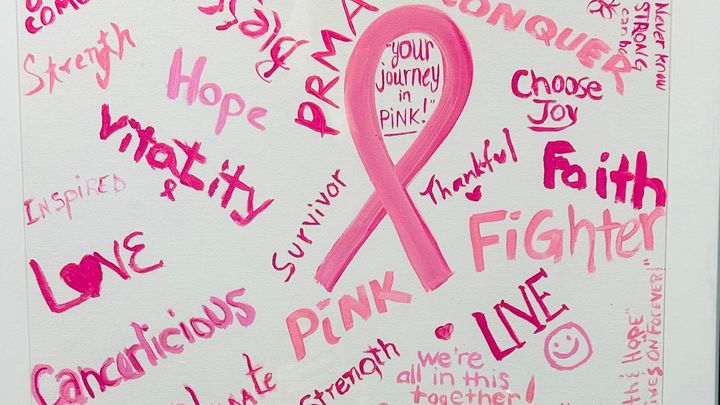 Strength
Hope
PRMA
CONQUER
"your
journey
in
PiNK!"
Never know
STRONG
can be
Choose
Joy
Vitality
Thankful
Faith
INSPIRED
Survivor
FiGHTer
LOVE
PiNK
LIVE
Cancerlicious
Strength
we're
all in this
together!
HOPE"
ON FOREVER!"